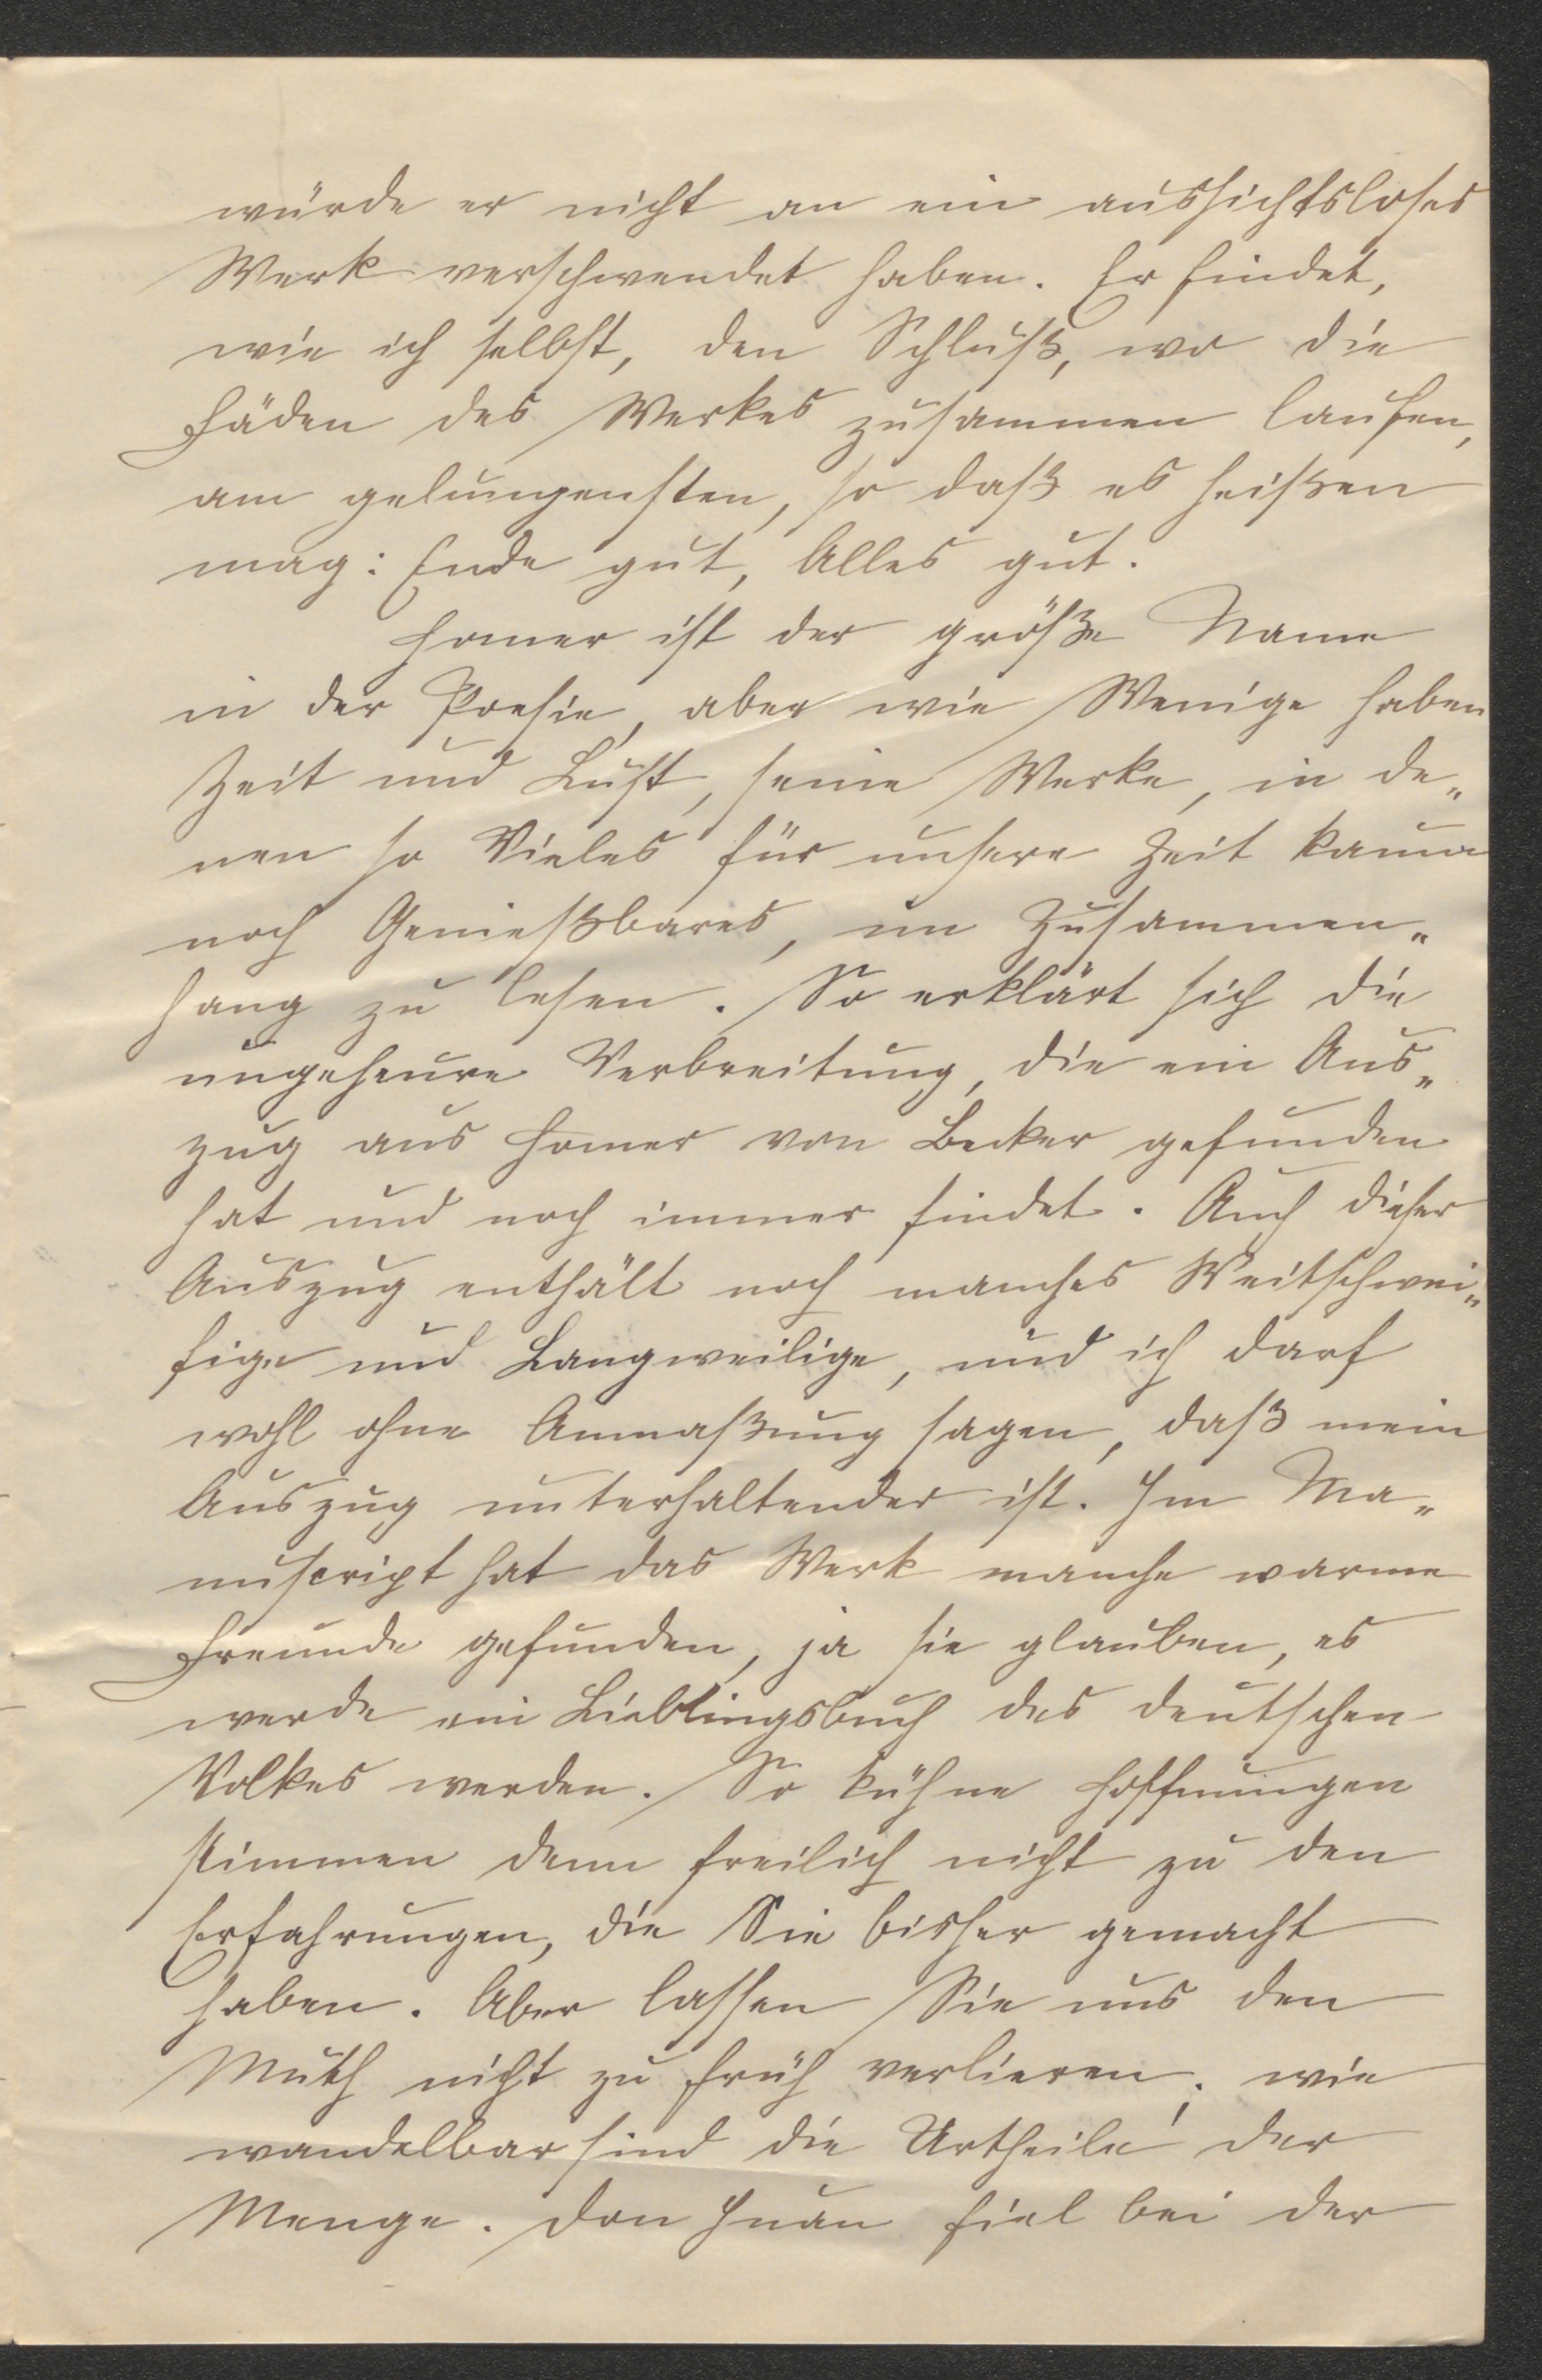 würde er nicht an ein aussichtsloses
Werk verschwendet haben. Er findet,
wie ich selbst, den Schluß, wo die
Fäden des Werkes zusammen laufen,
am gelungensten, so daß es heißen
mag: Ende gut, Alles gut.
Homer ist der größte Name
in der Poesie, aber wie Wenige haben
Zeit und Lust, seine Werke, in de„
nen so Vieles für unsere Zeit kaum
noch Genießbares, im Zusammen„
hang zu lesen. So erklärt sich die
ungeheure Verbreitung, die ein Aus„
zug aus Homer von Becker gefunden
hat und noch immer findet. Auch dieser
Auszug enthält noch manches Weitschwei„
fige und Langweilige, und ich darf
wohl ohne Anmaßung sagen, daß mein
Auszug unterhaltender ist. Im Ma„
nuscript hat das Werk manche warme
Freunde gefunden, ja sie glauben, es
werde ein Lieblingsbuch des deutschen
Volkes werden. So kühne Hoffnungen
stimmen denn freilich nicht zu den
Erfahrungen, die Sie bisher gemacht
haben. Aber lassen Sie uns den
Muth nicht zu früh verlieren; wie
wandelbar sind die Urtheile der
Menge. Don Juan fiel bei der